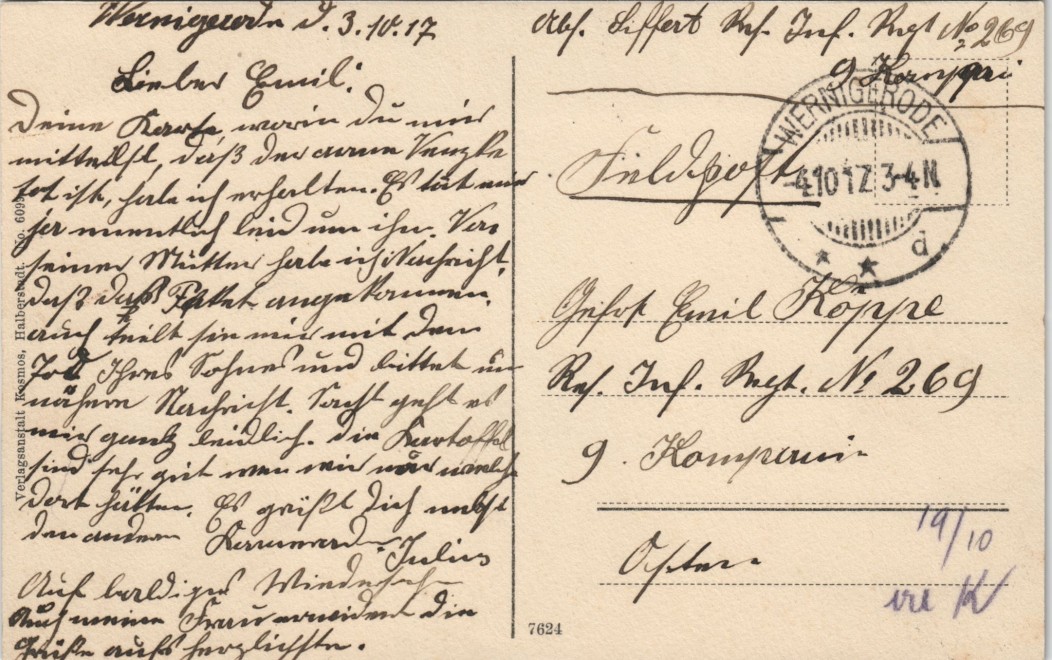 Wernigerode d. 3.10.17
Lieber Emil!
Deine Karte, worin du mir
mitteilst, daß der arme Venzke
tot ist, habe ich erhalten. Es tut mir
leid um ihn. Von
seiner Mutter habe ich Nachricht,
daß das Paket angekommen,
auch teilt sie mir mit den
Tod Ihres Sohnes und bittet um
nähere Nachricht. Sonst geht es
mir ganz leidlich. Die Kartoffel
sind sehr gut wen wir nur welche
dort hätten. Es grüßt Dich nebst
den andern Kameraden Julius
Auf baldiges Wiedersehn
Auch meine Frau erwidert die
Grüße aufs herzlichste.
Verlagsanstalt Kosmos, Halberstadt. No. 6095
Abs. Siffert Res. Inf. Regt No 269
9 Kompani
Feldpost
WERNIGERODE
4.10.17. 3-4 N
* * d
Gefr Emil Köppe
Res. Inf. Regt. No 269
9. Kompanie
Osten
19/10
K
7624